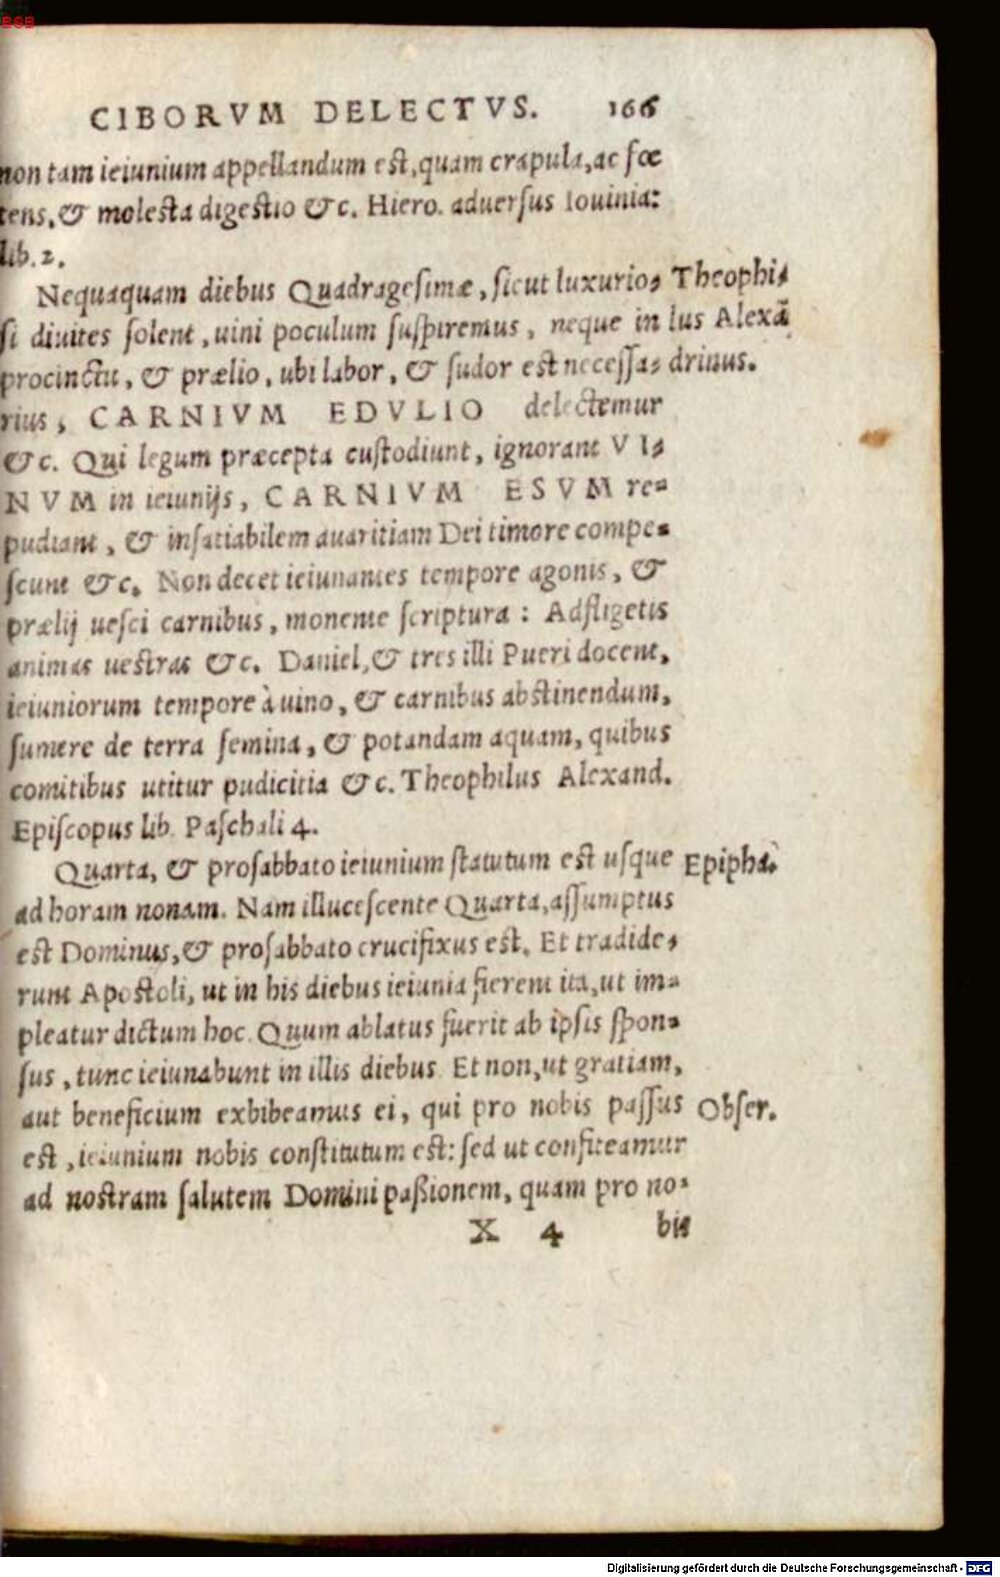 BSB
CIBORVM DELECTVS. 166
non tam ieiunium appellandum est, quam crapula, ac fœ
tens, & molesta digestio &c. Hiero. aduersus Iouinia:
lib. 2.
Nequaquam diebus Quadragesimæ, sicut luxurio- Theophi-
si diuites solent, uini poculum suspiremus, neque in lus Alexã
procinctu, & prælio, ubi labor, & sudor est necessa- drinus.
rius, CARNIVM EDVLIO delectemur
&c. Qui legum præcepta custodiunt, ignorant VI-
NVM in ieiunijs, CARNIVM ESVM re-
pudiant, & insatiabilem auaritiam Dei timore compe-
scunt &c. Non decet ieiunantes tempore agonis, &
prælij uesci carnibus, monente scriptura: Adfligetis
animas uestras &c. Daniel, & tres illi Pueri docent,
ieiuniorum tempore à uino, & carnibus abstinendum,
sumere de terra semina, & potandam aquam, quibus
comitibus utitur pudicitia &c. Theophilus Alexand.
Episcopus lib. Paschali 4.
Quarta, & prosabbato ieiunium statutum est usque Epipha-
ad horam nonam. Nam illucescente Quarta, assumptus
est Dominus, & prosabbato crucifixus est. Et tradide-
runt Apostoli, ut in his diebus ieiunia fierent ita, ut im-
pleatur dictum hoc. Quum ablatus fuerit ab ipsis spon-
sus, tunc ieiunabunt in illis diebus. Et non, ut gratiam,
aut beneficium exbibeamus ei, qui pro nobis passus Obser.
est, ieiunium nobis constitutum est: sed ut confiteamur
ad nostram salutem Domini paßionem, quam pro no-
X 4 bis
Digitalisierung gefördert durch die Deutsche Forschungsgemeinschaft - DFG